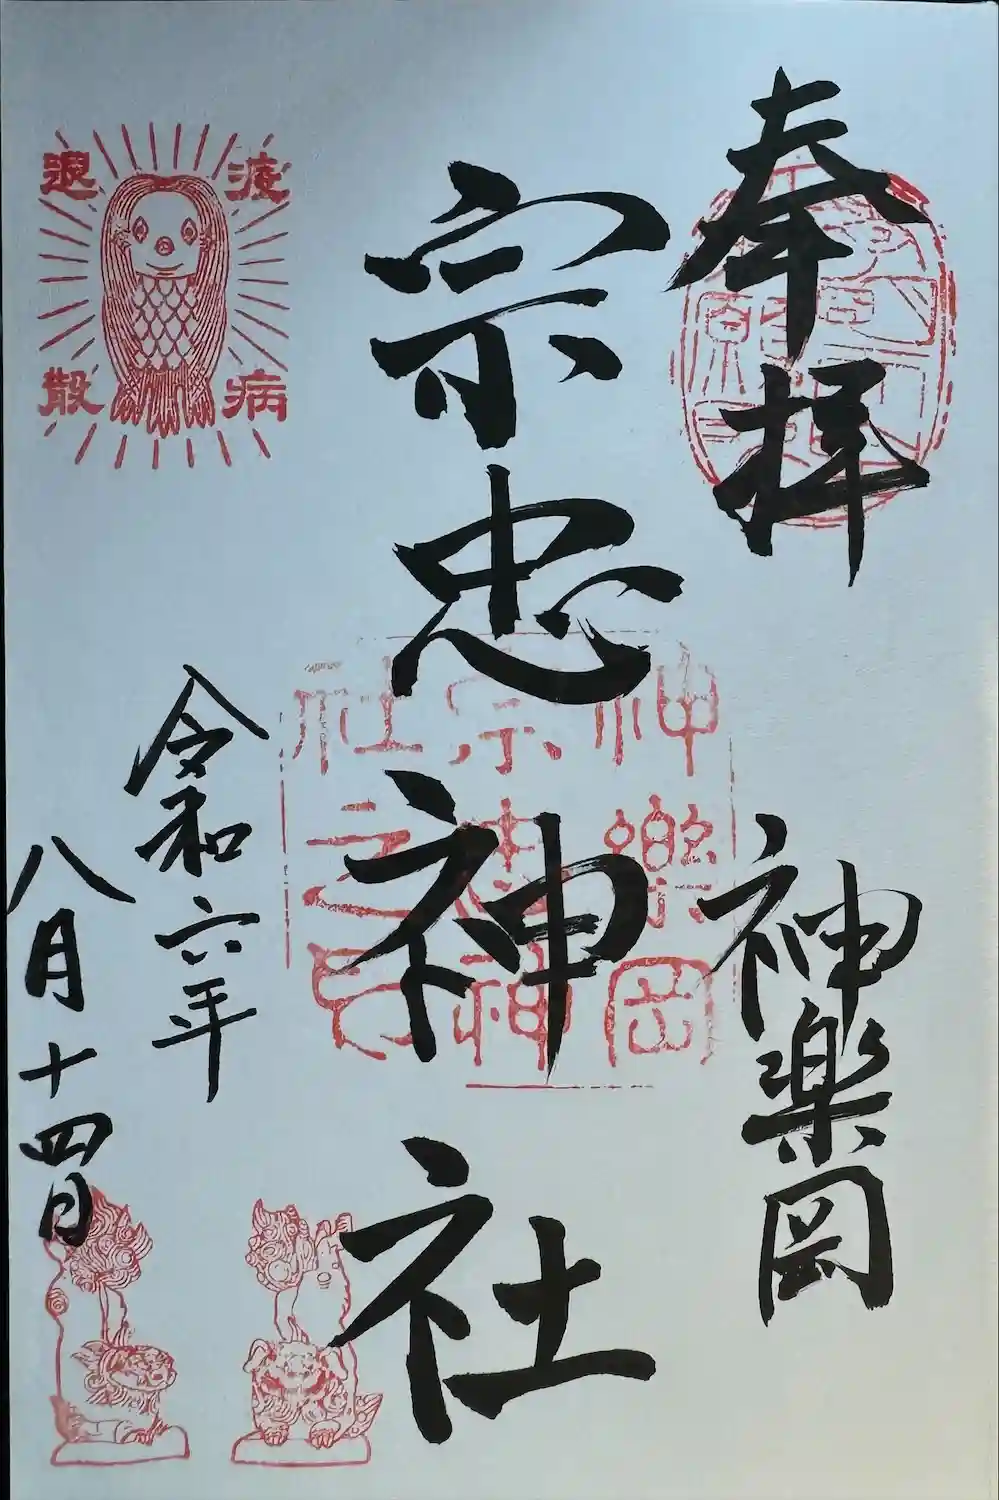 奉拝
神楽岡
宗忠神社
神楽岡
宗忠神
社之印
令和六年
八月十四日
疫病
退散